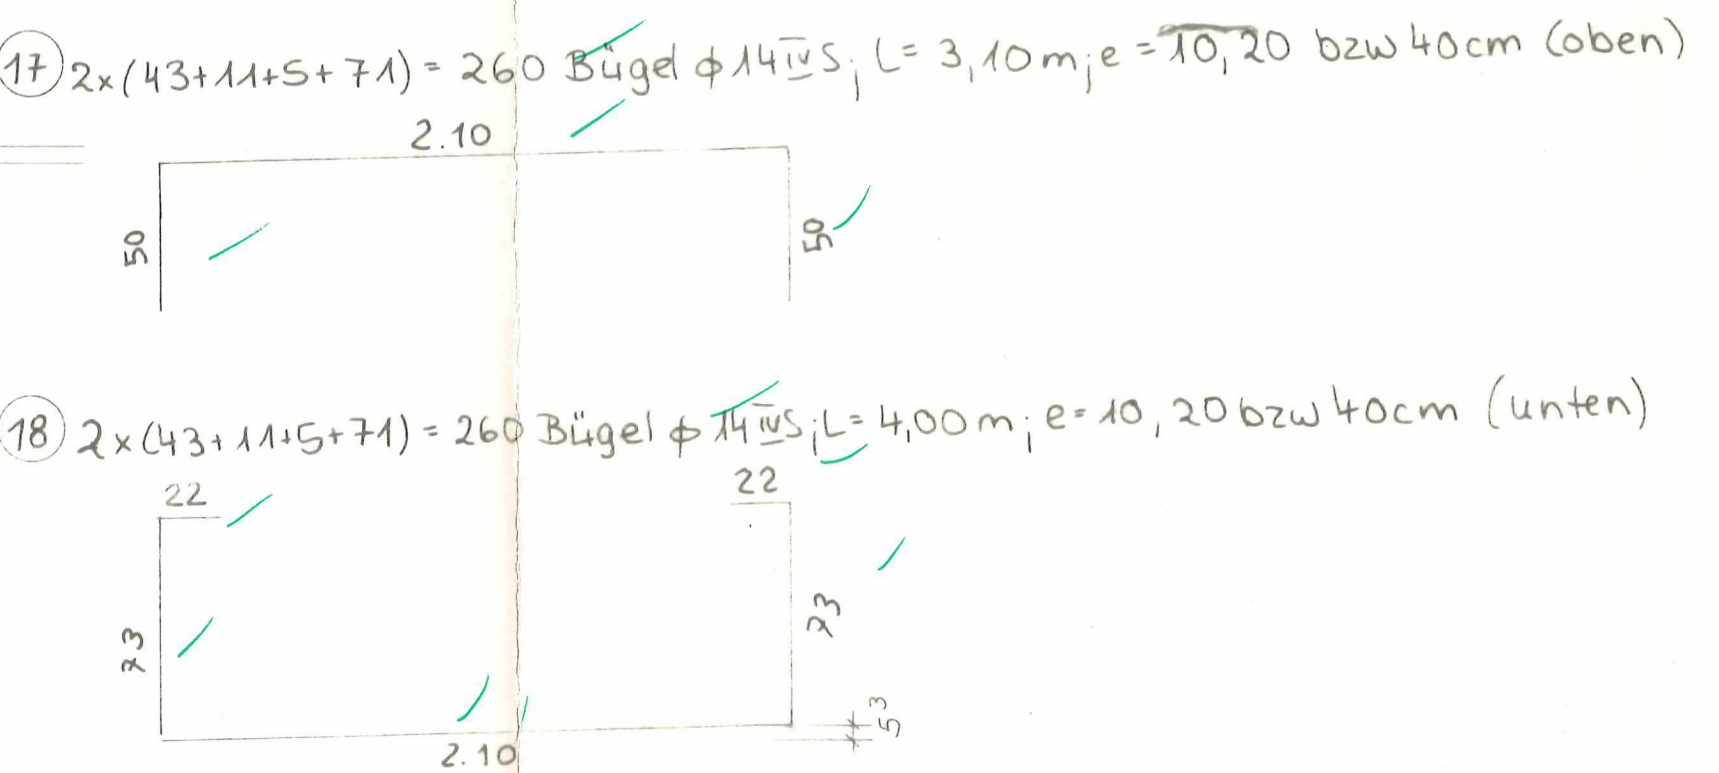 17 2x(43+11+5+71) = 260 Bügel ϕ 14 IV S; L= 3,10 m; e = 10, 20 bzw 40 cm (oben)
2.10
50
50
18 2x(43+11+5+71) = 260 Bügel ϕ 14 IV S; L= 4,00 m; e = 10, 20 bzw 40 cm (unten)
22
22
73
73
5³
2.10